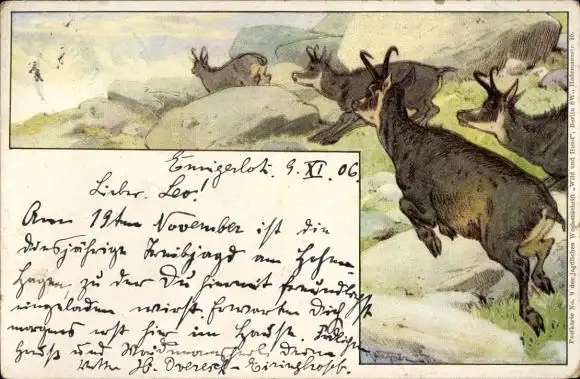 9. XI. 06.
Lieber Leo!
Am 19ten November ist die
diesjährige Treibjagd am Hohen-
hagen, zu der Du hiermit freundlichst
eingeladen wirst. Erwarten Dich
morgens erst hier im Hause.
Gruß und Waidmannsheil Dein
Postkarte No. 9 der jagdlichen Wochenschrift „Wild und Hund", Berlin SW., Hedemannstr. 10.